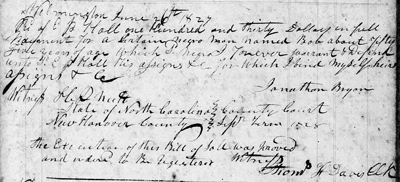 Wilmington June 26th 1827
Recd of E B Hall one hundred and thirty Dollars in full
payment for a certain negro man named Bob about fifty
five years of age which Negro I forever warrant & defend
unto Sd E B Hall his assigns &c for which I bind myself heirs
assigns &c
Jonathan Bryan
Witness
State of North Carolina County Court
New Hanover County Sept Term 1828
The Execution of this Bill of Sale was proved
and ordered to be registered
Witness
Thom F Davis Clk